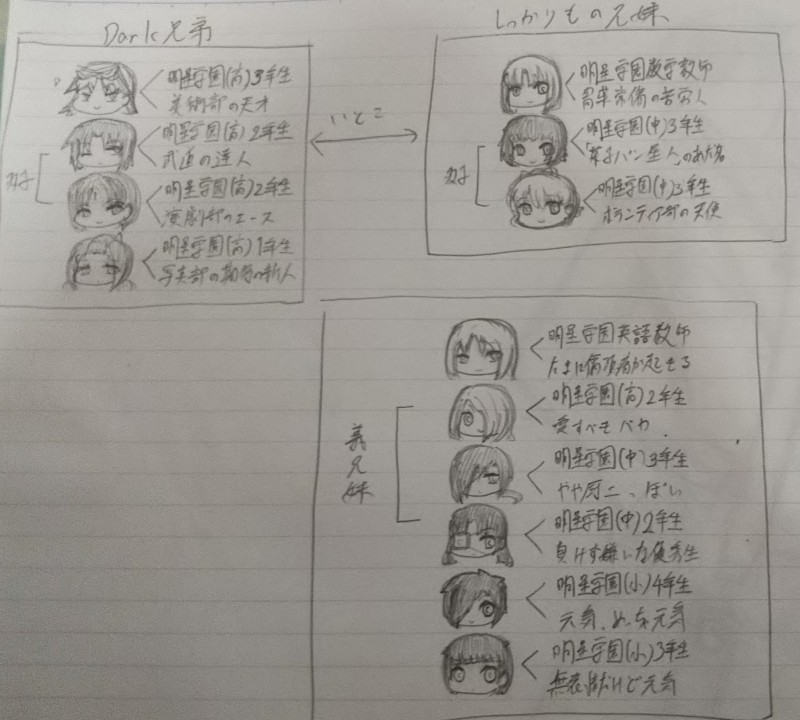 Dark兄弟
明星学園(高)3年生
美術部の天才
明星学園(高)2年生
武道の達人
双子
明星学園(高)2年生
演劇部のエース
明星学園(高)1年生
写真部の期待の新人
いとこ
しっかりもの兄妹
明星学園数学教師
胃薬常備の苦労人
明星学園(中)3年生
「菓子パン星人」のあだ名
双子
明星学園(中)3年生
ボランティア部の天使
明星学園英語教師
たまに偏頭痛が起きる
明星学園(高)2年生
愛すべきバカ
義兄妹
明星学園(中)3年生
やや厨二っぽい
明星学園(中)2年生
負けず嫌いな優秀生
明星学園(小)4年生
元気、めっちゃ元気
明星学園(小)3年生
無表情だけど元気